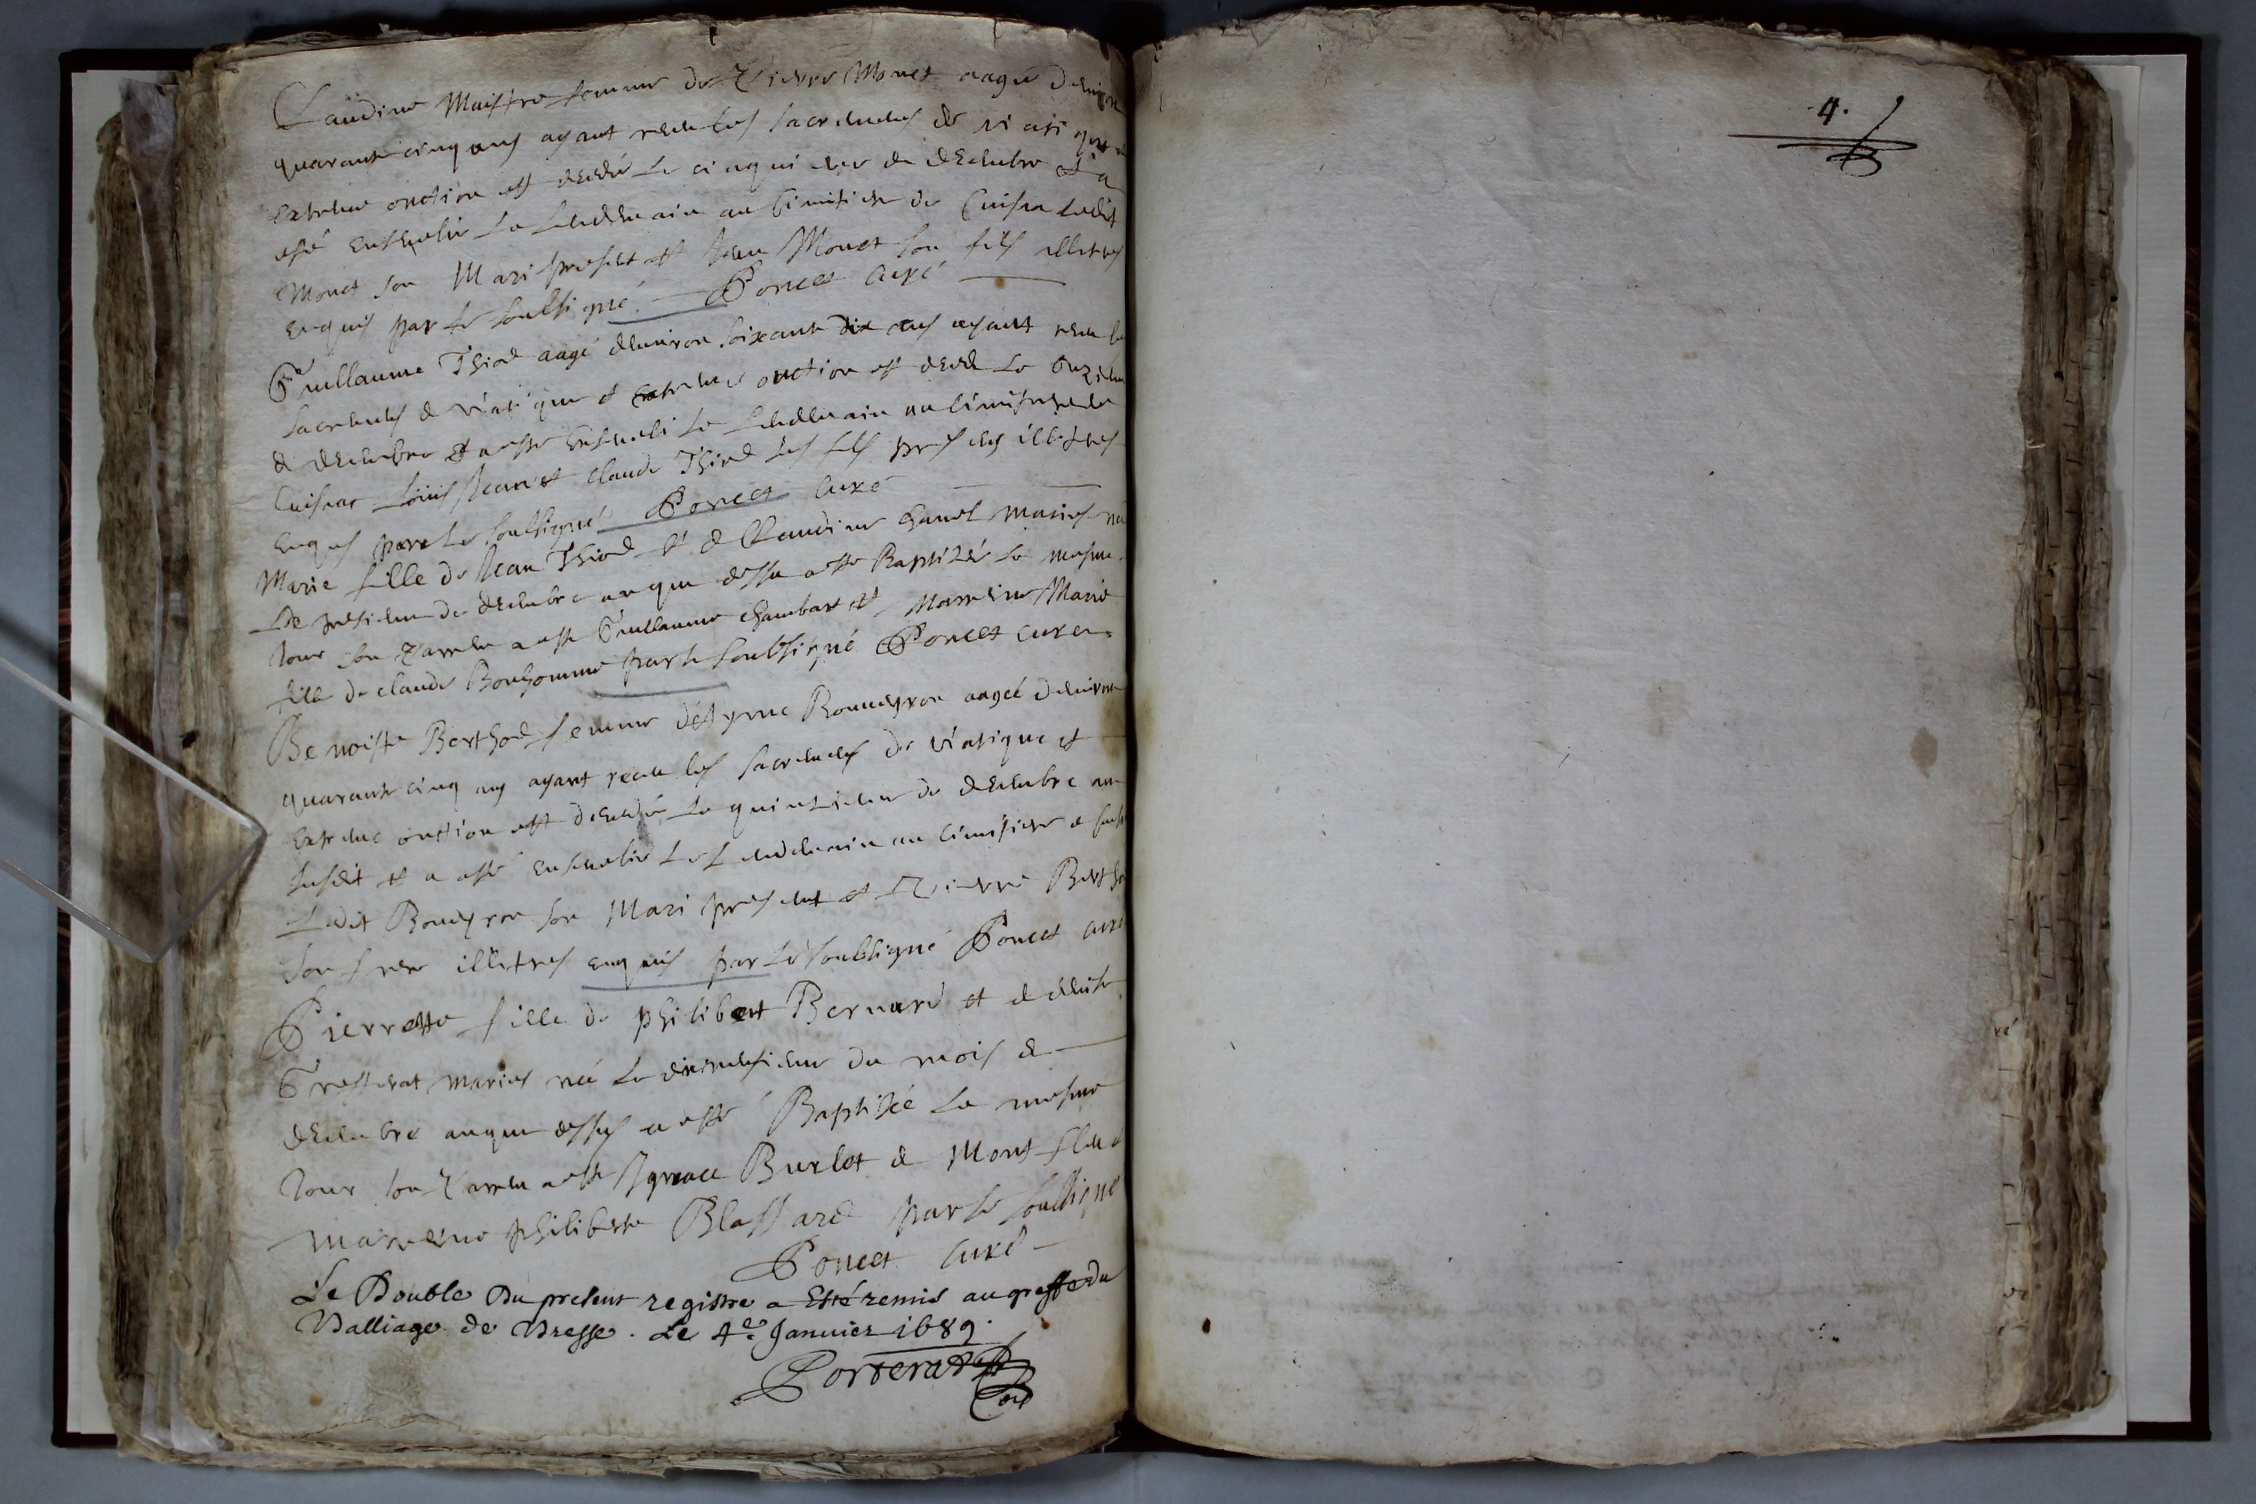 Claudine Maistre femme de Pierre Monet aagée denviron
quarante cinq ans ayant receu les sacremens de viatique et
extreme onction est decedée le cinquieme de decembre et a
esté ensevelie le lendemain au cimitiere de Cuisia ledit
Monet son Mari present et Jean Monet son fils illitres
enquis par le soubsigné. Poncet curé
Guillaume Thiod aagé denviron soixante dix ans ayant receu les
sacremens de viatique et extreme onction est decedé le onzieme
de decembre et a esté ensevelі le lendemain au cimitiere de
Cuisia Louis Jean et Claude Thiod ses fils presens illitres
enquis par le soubsigné Poncet curé
Marie fille de Jean Thiod et de Claudine Chanel mariés née
le de decembre an que dessu a esté Baptizée le mesme
Jour son Parrein a esté Guillaume Chambart et Marreine Marie
fille de claude Bonhomme par le soubsigné Poncet curé.
Benoiste Berthod femme de Bouveyron aagée denviron
quarante cinq ans ayant receu les sacremens de viatique et
extreme onction est decedée le quinzieme de decembre an
susdit et a esté ensevelie le lendemain au cimitiere de
Ledit Bouveyron son Mari present et Pierre Berthod
son frere illitres enquis par le soubsigné Poncet curé
Pierrette fille de philibert Bernard et de denise
mariés née le du mois de
decembre an que dessus a esté Baptisée le mesme
Jour son Parrein a esté Ignace Burlet de
marreine philiberte Blassard par le soubsigné
Poncet curé
Le Double Du present registre a Esté remis au greffe du
Balliage de Bresse. Le 4e. Janvier 1689.
Porterat
4.